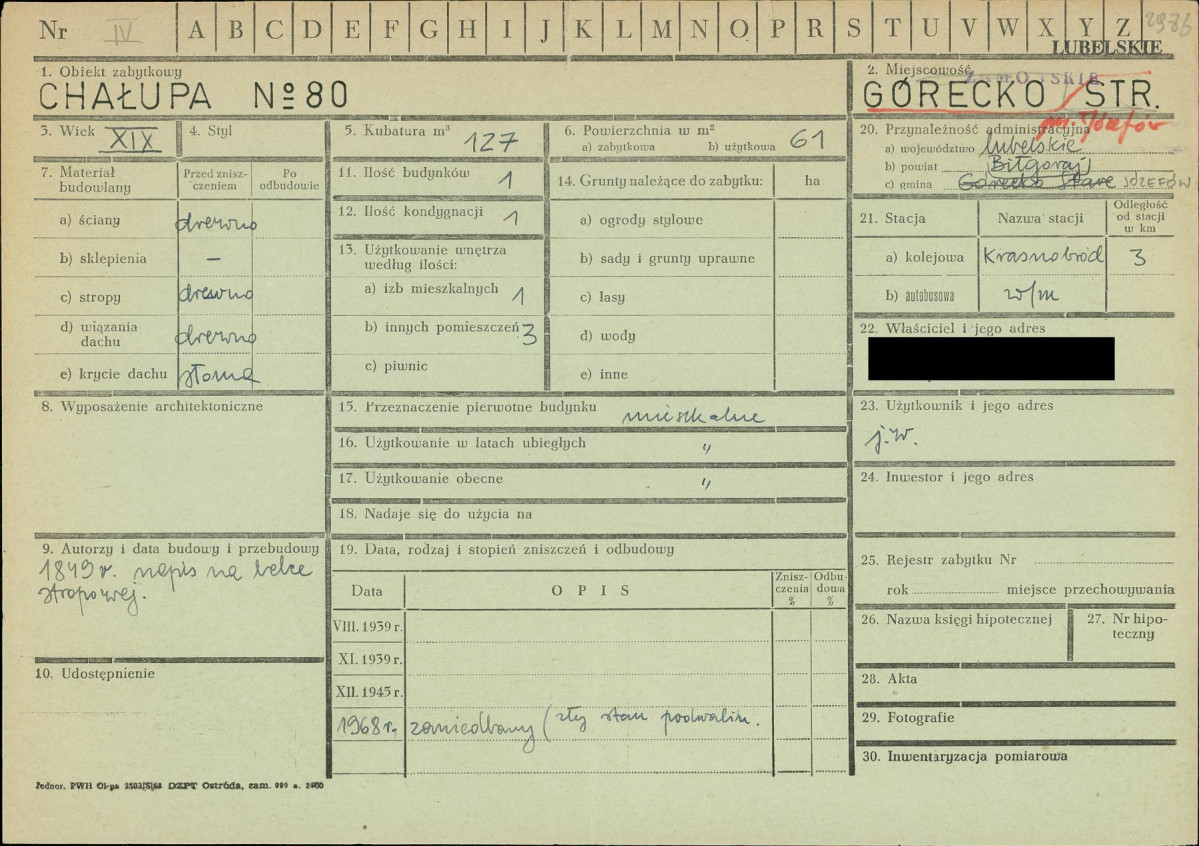 Nr IV A B C D E F G H I J K L M N O P R S T U V W X Y Z 2986
LUBELSKIE
1. Obiekt zabytkowy
CHAŁUPA Nº 80
2. Miejscowość
ZAMOJSKIE
GÓRECKO STR.
gm. Józefów
3. Wiek
XIX
4. Styl
5. Kubatura m³
127
6. Powierzchnia w m²
a) zabytkowa b) użytkowa 61
20. Przynależność administracyjna
a) województwo lubelskie
b) powiat Biłgoraj
c) gmina Górecko Stare JÓZEFÓW
7. Materiał budowlany
Przed zniszczeniem
Po odbudowie
a) ściany drewno
b) sklepienia –
c) stropy drewno
d) wiązania dachu drewno
e) krycie dachu słoma
11. Ilość budynków 1
12. Ilość kondygnacji 1
13. Użytkowanie wnętrza
według ilości:
a) izb mieszkalnych 1
b) innych pomieszczeń 3
c) piwnic
14. Grunty należące do zabytku: ha
a) ogrody stylowe
b) sady i grunty uprawne
c) lasy
d) wody
e) inne
21. Stacja
Nazwa stacji
Odległość od stacji w km
a) kolejowa Krasnobród 3
b) autobusowa w/m
22. Właściciel i jego adres
8. Wyposażenie architektoniczne
15. Przeznaczenie pierwotne budynku mieszkalne
16. Użytkowanie w latach ubiegłych "
17. Użytkowanie obecne "
18. Nadaje się do użycia na
23. Użytkownik i jego adres
j.w.
24. Inwestor i jego adres
9. Autorzy i data budowy i przebudowy
1849 r. napis na belce
stropowej.
10. Udostępnienie
19. Data, rodzaj i stopień zniszczeń i odbudowy
Data
OPIS
Zniszczenia %
Odbudowa %
VIII. 1939 r.
XI. 1939 r.
XII. 1945 r.
1968 r. zaniedbany (zły stan podwalin.
25. Rejestr zabytku Nr
rok miejsce przechowywania
26. Nazwa księgi hipotecznej
27. Nr hipoteczny
28. Akta
29. Fotografie
30. Inwentaryzacja pomiarowa
Jednor. PWH Ol-pa 2503/S/68 DZPT Ostróda, zam. 999 a. 2400